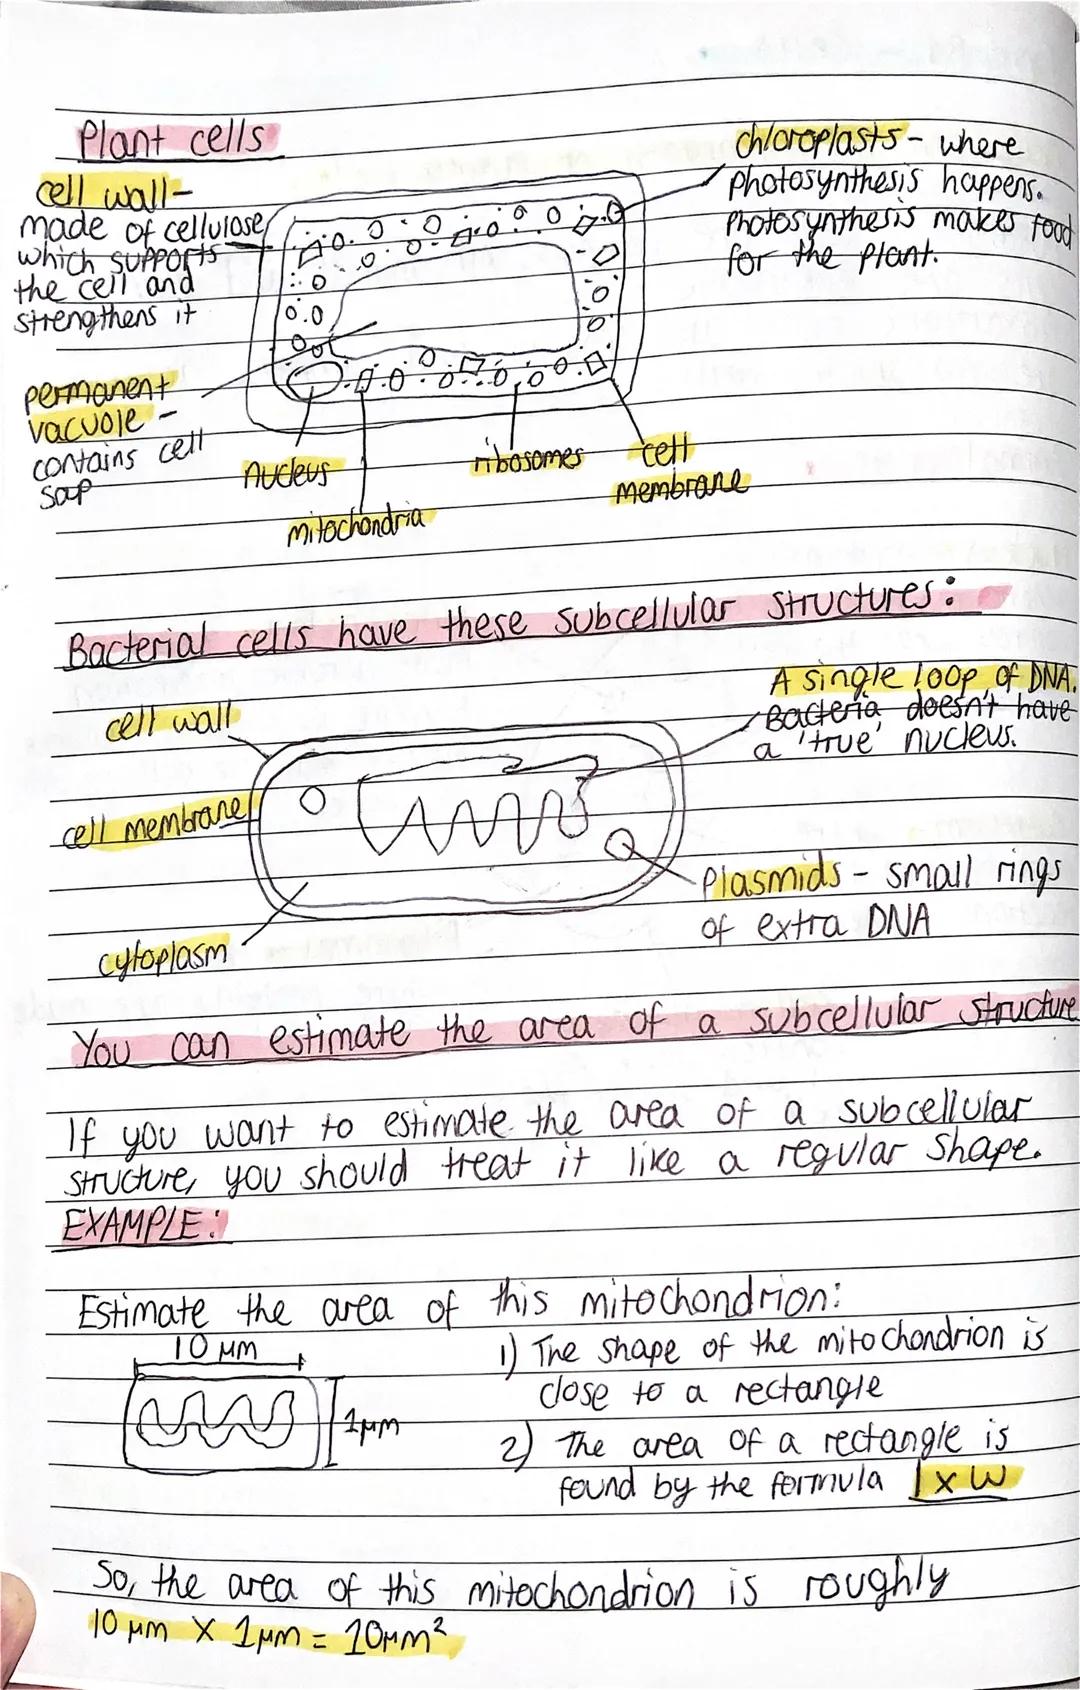 Plant cells
cell wall-
made of cellulose
which supports
the cell and
strengthens it
chloroplasts - where
photosynthesis happens.
Photosynthesis makes food
for the plant.
permanent
vacuole -
contains cell
sap
nucleus
mitochondria
ribosomes
cell
membrane
Bacterial cells have these subcellular structures:
cell wall
cell membrane
cytoplasm
A single loop of DNA.
Bacteria doesn't have
a 'true' nucleus.
Plasmids - small rings
of extra DNA
You can estimate the area of a subcellular structure
If you want to estimate the area of a subcellular
structure, you should treat it like a regular shape.
EXAMPLE:
Estimate the area of this mitochondrion:
10 μm
1μm
1) The shape of the mitochondrion is
close to a rectangle
2) The area of a rectangle is
found by the formula l x w
So, the area of this mitochondrion is roughly
10 μm x 1μm = 10μm²